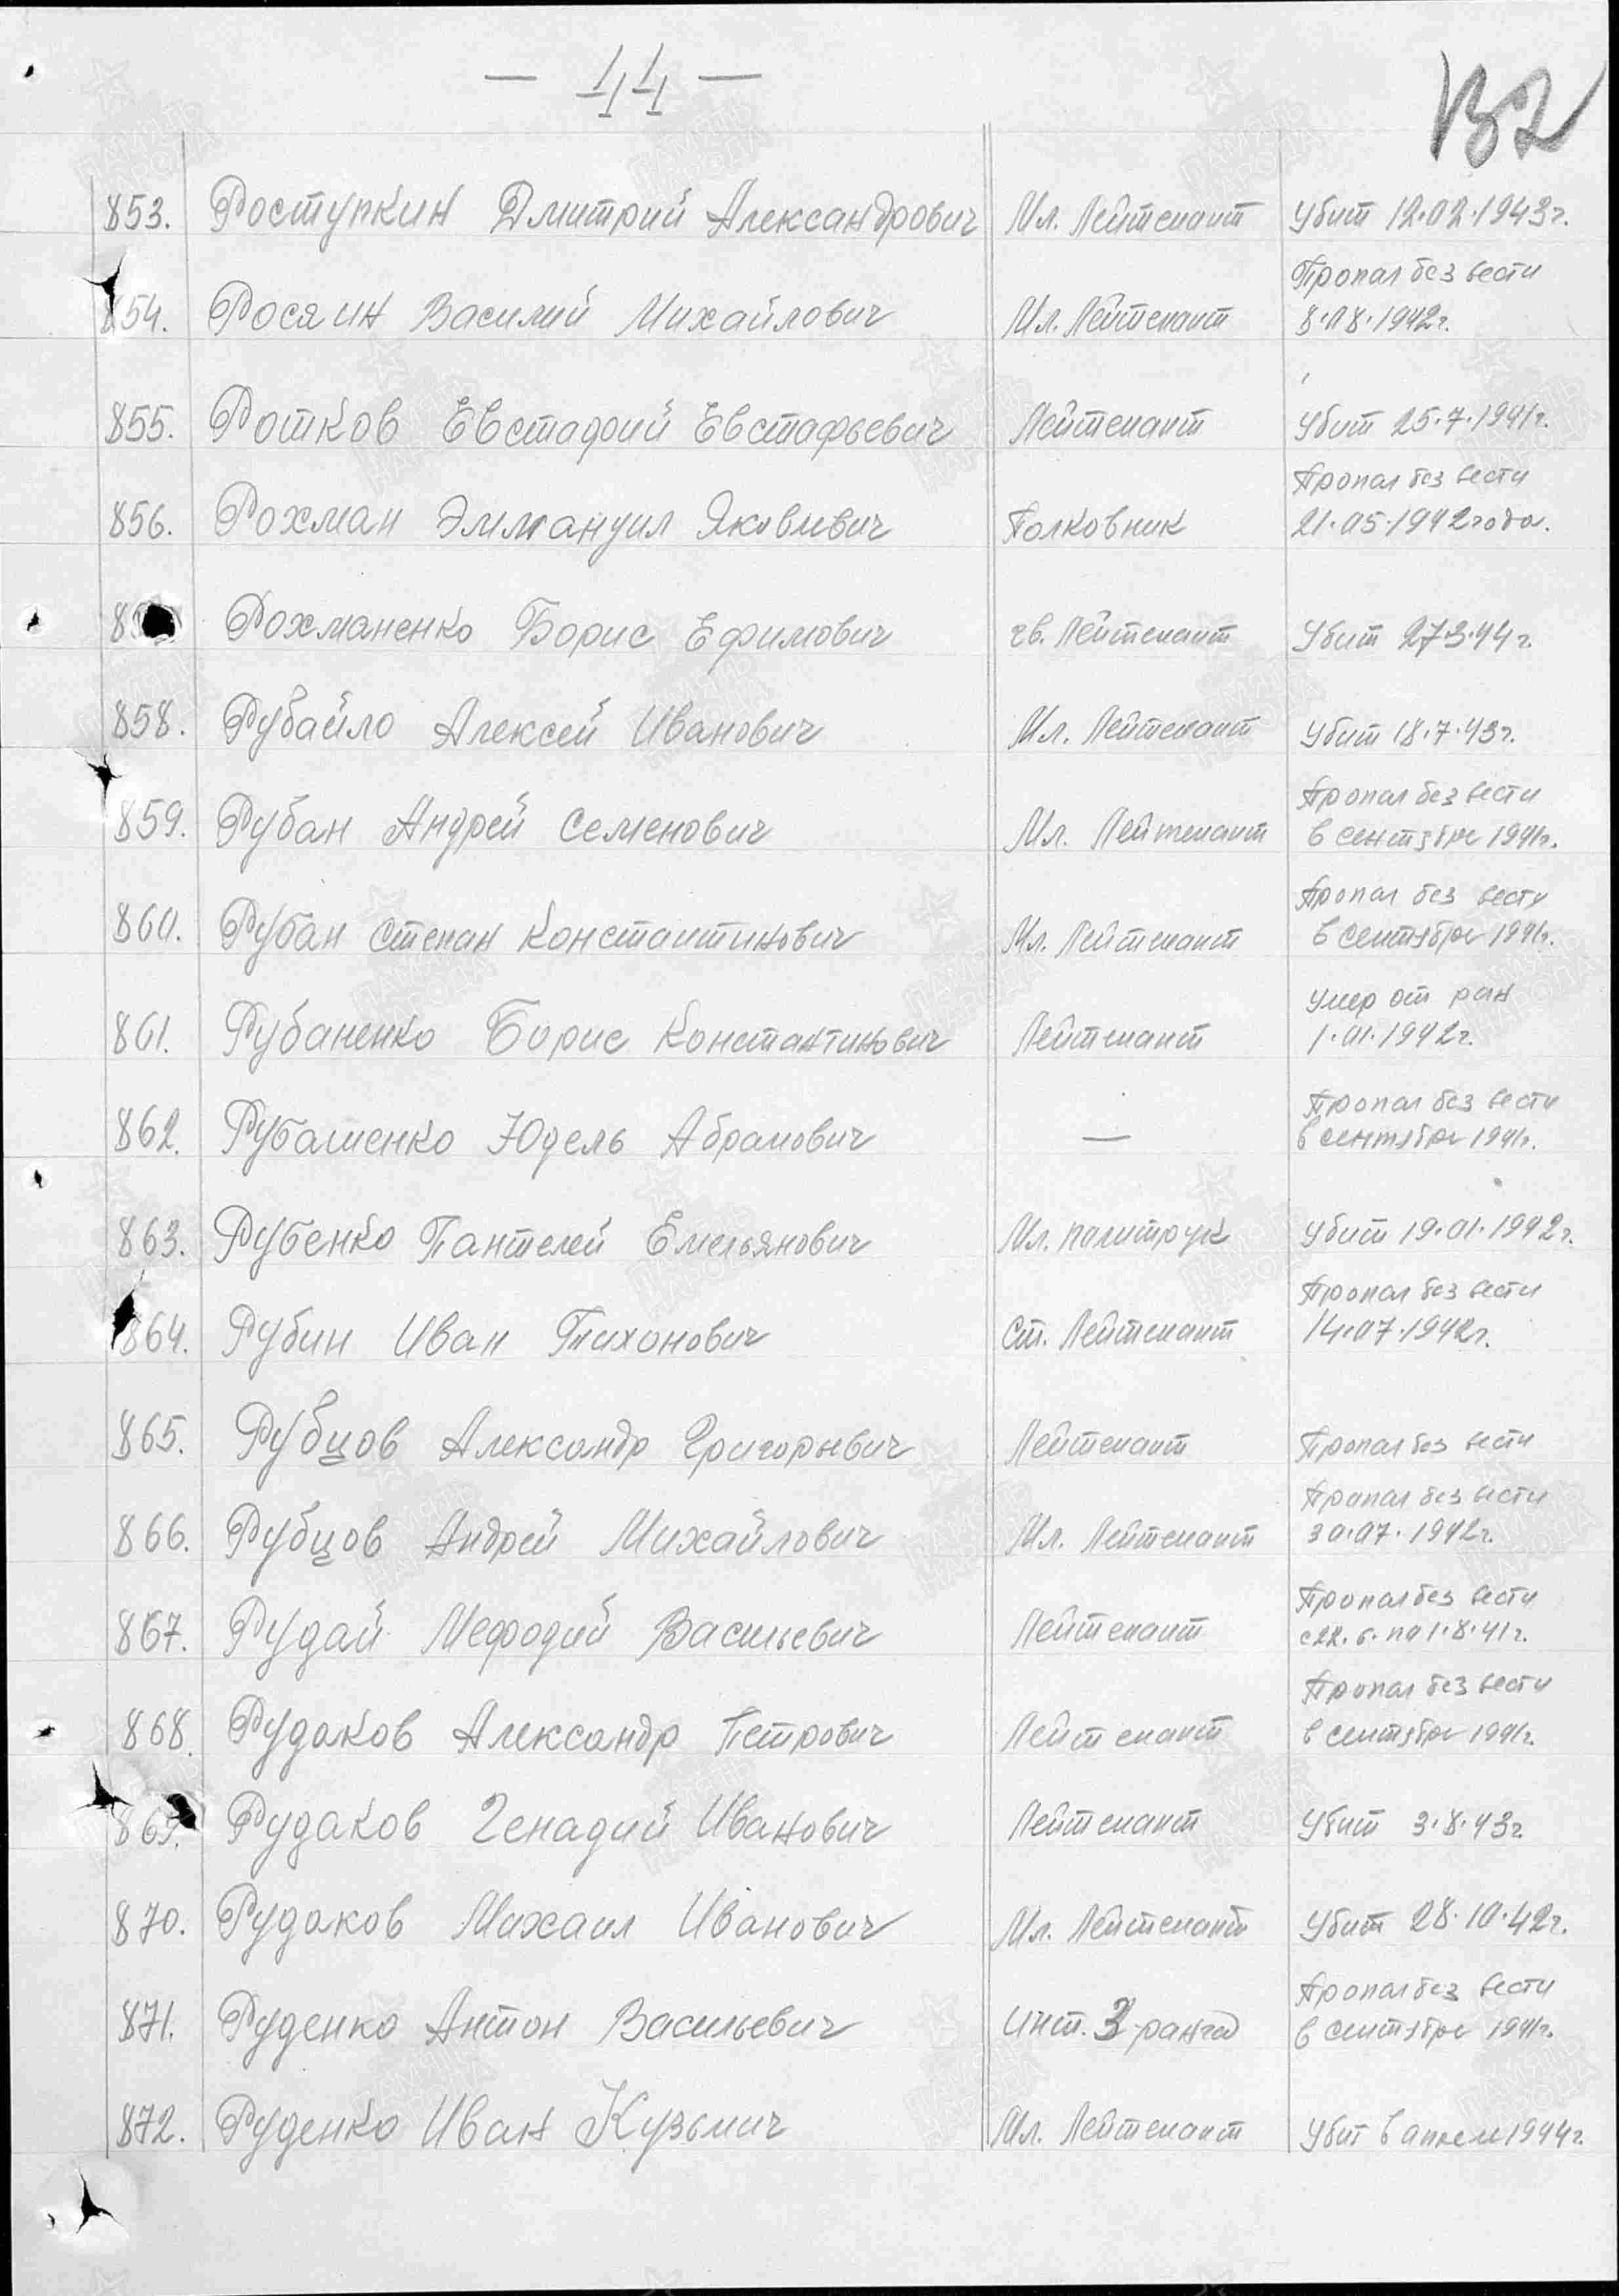 — 44 —
132
853. Роступкин Дмитрий Александрович Мл. Лейтенант Убит 12.02.1943г.
Пропал без вести
854. Росяин Василий Михайлович Мл. Лейтенант 8.08.1942г.
855. Ротков Евстафий Евстафьевич Лейтенант Убит 25.7.1941г.
Пропал без вести
856. Рохман Эммануил Яковлевич Полковник 21.05.1942года.
8 Рохманенко Борис Ефимович гв. Лейтенант Убит 27.3.44г.
858. Рубайло Алексей Иванович Мл. Лейтенант Убит 18.7.43г.
Пропал без вести
859. Рубан Андрей Семенович Мл. Лейтенант в сентябре 1941г.
Пропал без вести
860. Рубан Степан Константинович Мл. Лейтенант в сентябре 1941г.
Умер от ран
861. Рубаненко Борис Константинович Лейтенант 1.01.1942г.
Пропал без вести
862. Рубашенко Юдель Абрамович — в сентябре 1941г.
863. Рубенко Пантелей Емельянович Мл. политрук Убит 19.01.1942г.
Пропал без вести
864. Рубин Иван Тихонович Ст. Лейтенант 14.07.1942г.
865. Рубцов Александр Григорьевич Лейтенант Пропал без вести
Пропал без вести
866. Рубцов Андрей Михайлович Мл. Лейтенант 30.07.1942г.
Пропал без вести
867. Рудай Мефодий Васильевич Лейтенант с 22.6. по 1.8.41г.
Пропал без вести
868. Рудаков Александр Петрович Лейтенант в сентябре 1941г.
869. Рудаков Генадий Иванович Лейтенант Убит 3.8.43г.
870. Рудаков Михаил Иванович Мл. Лейтенант Убит 28.10.42г.
Пропал без вести
871. Руденко Антон Васильевич Инт. 3 ранга в сентябре 1941г.
872. Руденко Иван Кузьмич Мл. Лейтенант Убит в апреле 1944г.